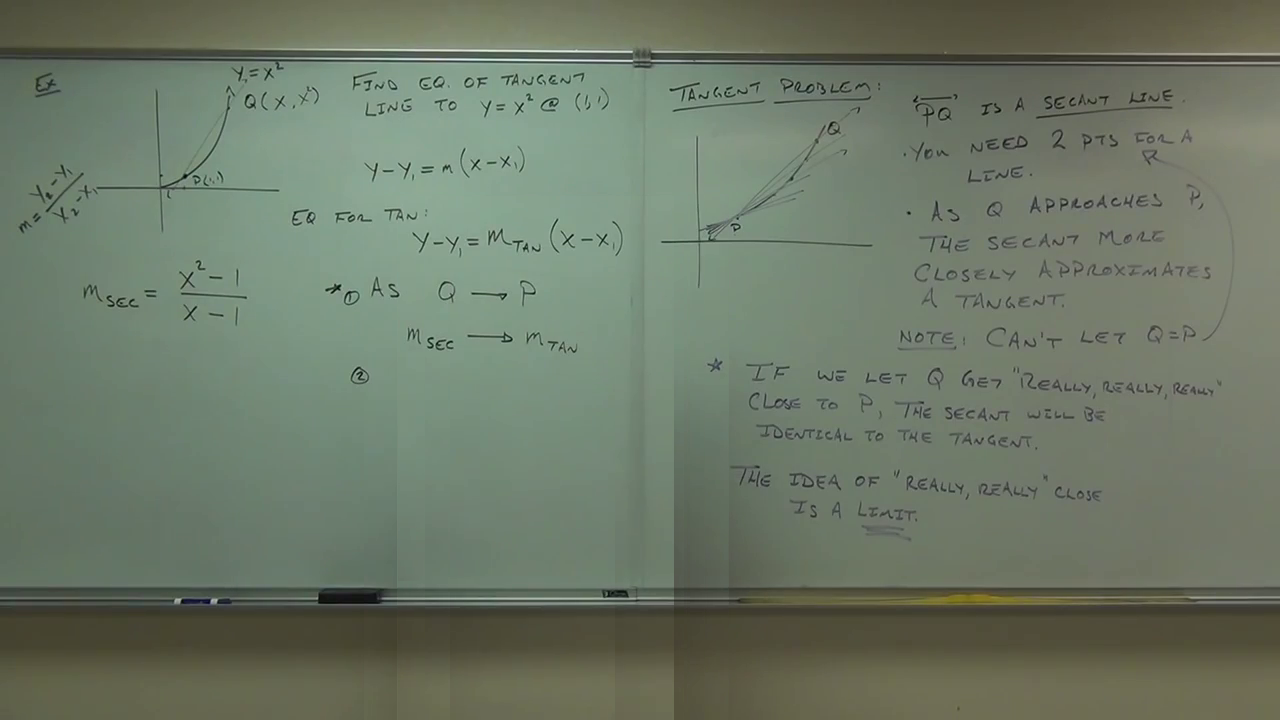 Ex
y = x²
Q(x, x²)
P(1,1)
m = y₂ - y₁ / x₂ - x₁
FIND EQ. OF TANGENT
LINE TO y = x² @ (1,1)
y - y₁ = m(x - x₁)
EQ FOR TAN:
y - y₁ = m_TAN (x - x₁)
m_SEC = x² - 1 / x - 1
* ① AS Q → P
m_SEC → m_TAN
②
TANGENT PROBLEM:
Q
P
"PQ" IS A SECANT LINE.
· YOU NEED 2 PTS FOR A
LINE.
· AS Q APPROACHES P,
THE SECANT MORE
CLOSELY APPROXIMATES
A TANGENT.
NOTE: CAN'T LET Q=P
* IF WE LET Q GET "REALLY, REALLY, REALLY"
CLOSE TO P, THE SECANT WILL BE
IDENTICAL TO THE TANGENT.
THE IDEA OF "REALLY, REALLY" CLOSE
IS A LIMIT.